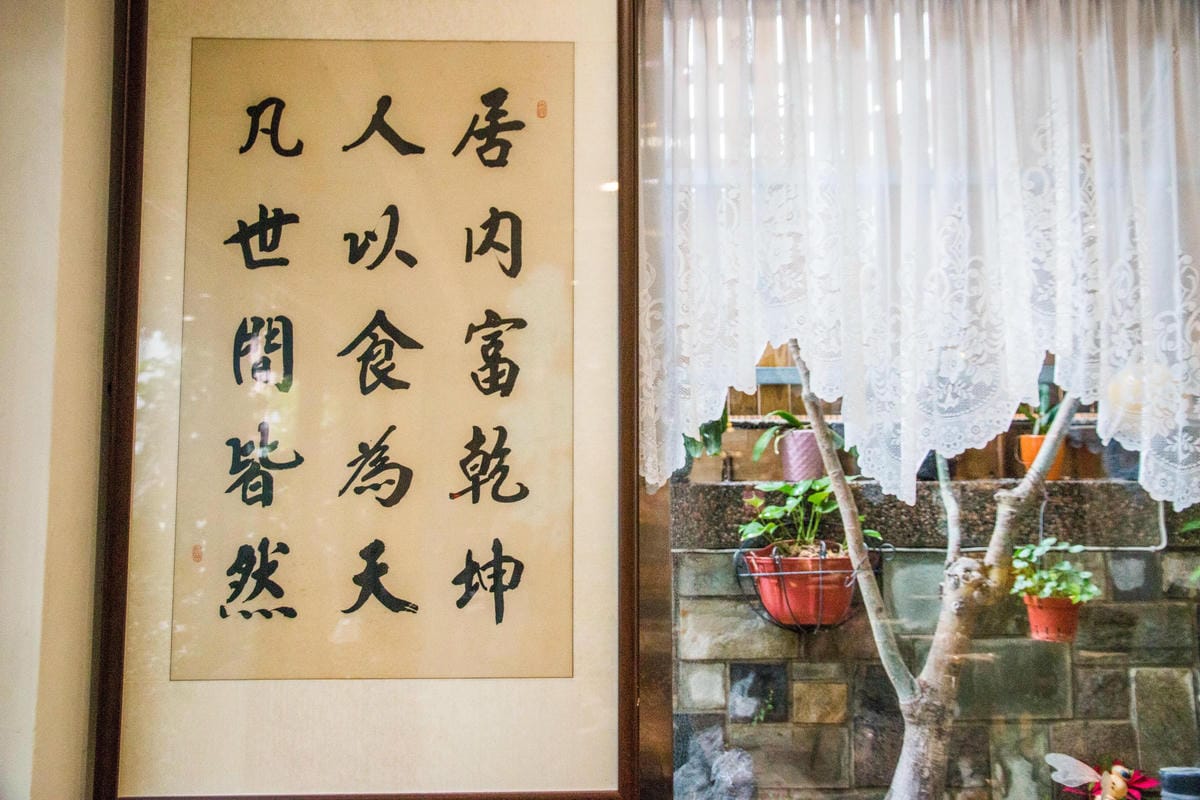 居內富乾坤
人以食為天
凡世間皆然